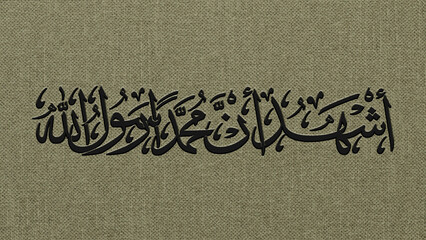 أشهد أنَّ مُحَمَّداً رَسُولُ اللَّه